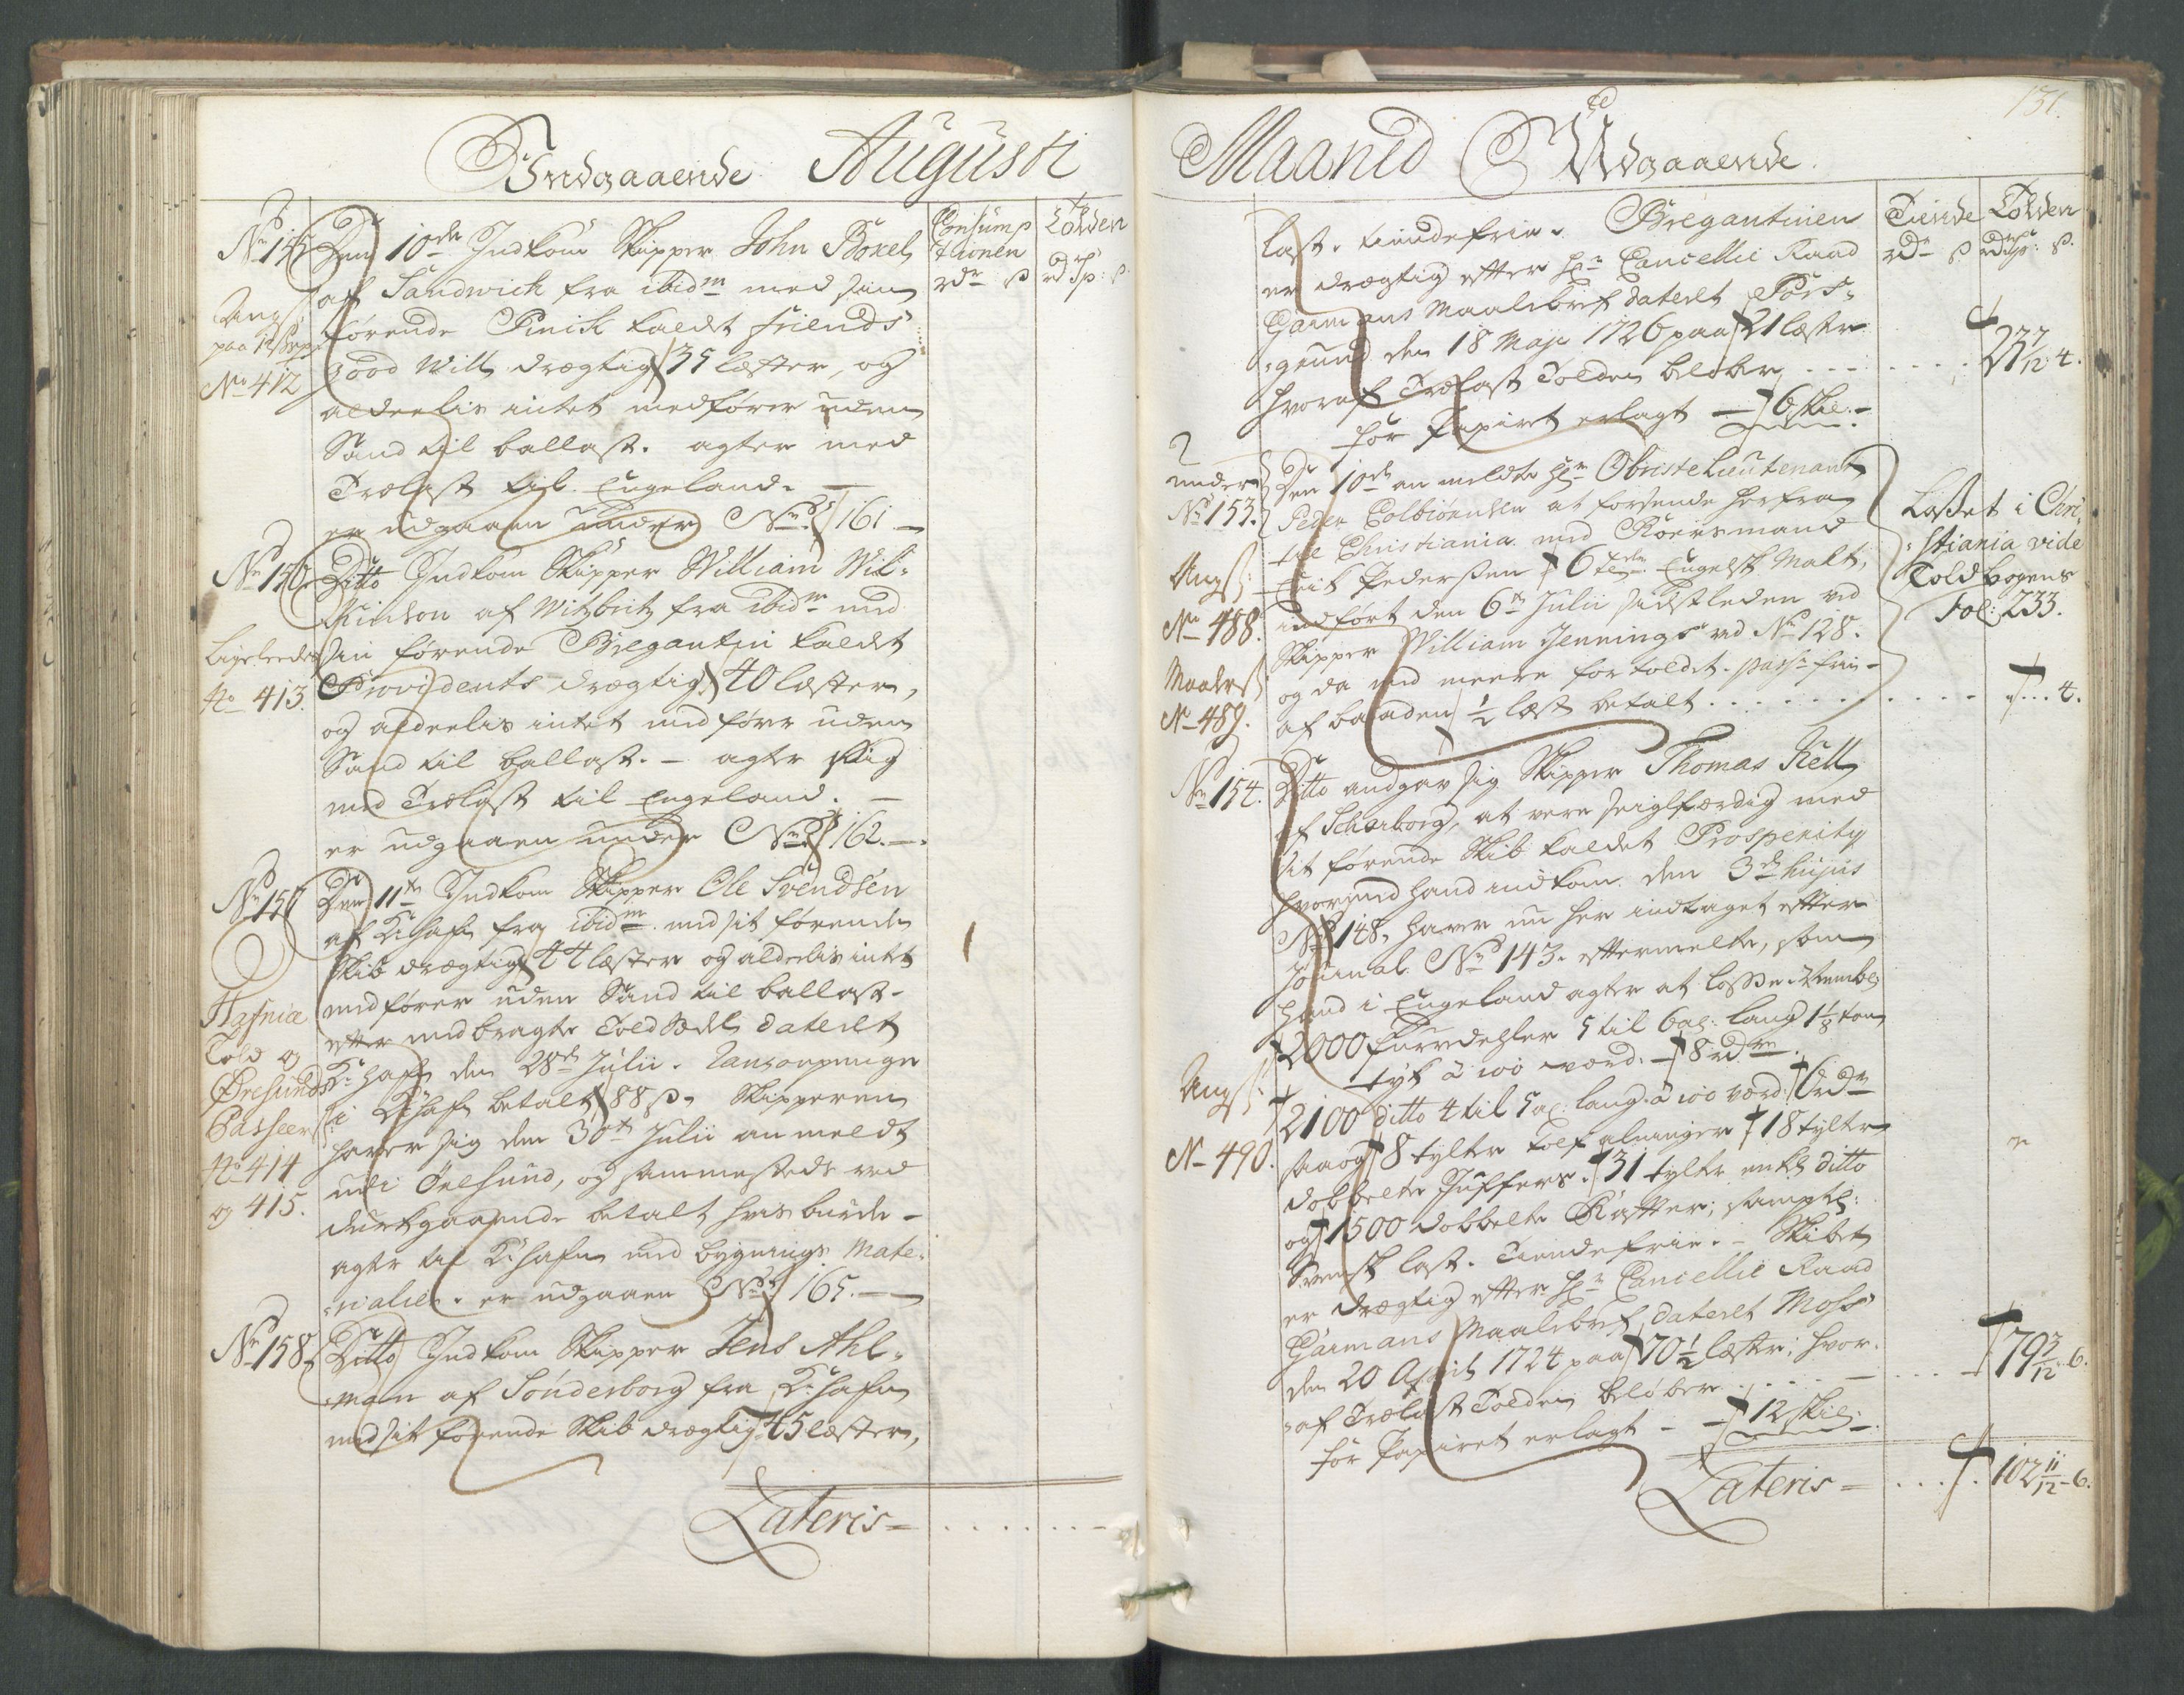 Indgaaende Augusti
Consump
tionen
rdr ß
Tolden
rd sp: ß
No 155
Den 10de Indkom Skipper John Boxel
af Sandwich fra ibidm med sin
førende Pinik kaldet friends
good Will drægtig 35 læster, og
aldeelis intet medfører uden
Sand til ballast. agter med
Trælast til Engeland. —
er udgaaen under No 161 —
Angs:
paa 12 ß pap:
No 412
No 156
Ditto Indkom Skipper William Wil-
kinson af Witbuy fra ibidm med
sin førende Bregantin kaldet
Providents drægtig 40 læster,
og aldeelis intet medfører uden
Sand til ballast. — agter sig
med Trælast til Engeland. —
er udgaaen under No 162. —
Ligeleedes
No 413.
No 157
Den 11te Indkom Skipper Ole Svendsen
af Kt hafn fra ibidm med sit førende
Skib drægtig 44 læster og aldeelis intet
medfører uden Sand til ballast.
efter medbragte Told Sedel dateret
Kt hafn den 28de Julii. Ransonpenger
i Kt hafn betalt 88 ß. Skipperen
haver sig den 30te Julii anmeldt
udi Øresund, og sammesteds ved
durkgaaende betalt hvis burde —
agter til Kt hafn med bygnings Mate-
rialier. er udgaaen No 165. —
Hafniæ
Told og
Øresunds
Passeers:
No 414
og 415.
No 158
Ditto Indkom Skipper Jens Ahl-
man af Sønderborg fra Kt hafn
med sit førende Skib drægtig 45 læster,
Lateris = . . . . . . .
Maaned Udgaaende
131.
Tiende
rdr ß
Tolden
rdr sp: ß.
last. tiendefrie. Bregantinen
er drægtig efter Hr Cancellie Raad
Garmans Maalebref dateret Pors-
grund den 18 Maji 1726 paa 21 læster
hvoraf Trælast Tolden beløber . . . . . . 23 7/12 4.
for Papiret erlagt — 6 skil: —
under
No 153.
Den 10de anmeldte Hr Obriste Lieutenant
Peder Colbiørnsen at forsende herfra
til Christiania med Roersmand
Erik Pedersen 6 tdr Engelsk Malt,
indført den 6te Julii sidstleden ved
Skipper William Jennings ved No 128.
og da med meere fortoldet. pass: frie —
af baaden 1/2 læst betalt . . . . . . . . . . 4.
Angs:
No 488.
Maalers:
No 489.
Losset i Chri-
stiania vide
Toldbogens
Fol: 233.
No 154.
Ditto andgav sig Skipper Thomas Kell
af Scharborg, at vere seiglfærdig med
sit førende Skib kaldet Prosperity
hvormed hand indkom den 3de hujus
No 148, haver nu her indtaget efter
Journal No 143. eftermelte, som
hand i Engeland agter at losse. Nemlig
2000 furredehler 5 til 6 al: lang 1 1/8 tom
tyk á 100 værd: — 8 rdr.
2100 ditto 4 til 5 al: lang á 100 værd: 6 rdr
saaog 8 tylter tolf alninger 18 tylter
dobbelte Juffers. 31 tylter enkel ditto
og 1500 dobbelte Raffter; samptl:
Svensk last. Tiendefrie. — Skibet
er drægtig efter Hr Cancellie Raad
Garmans Maalebref, dateret Moss
den 20 April 1724 paa 70 1/2 læster; hvor-
af Trælast Tolden beløber . . . . . . . 79 3/12 6.
for Papiret erlagt — 12 skil: —
Angs:
No 490.
Lateris = . . . 102 11/12 - 6.